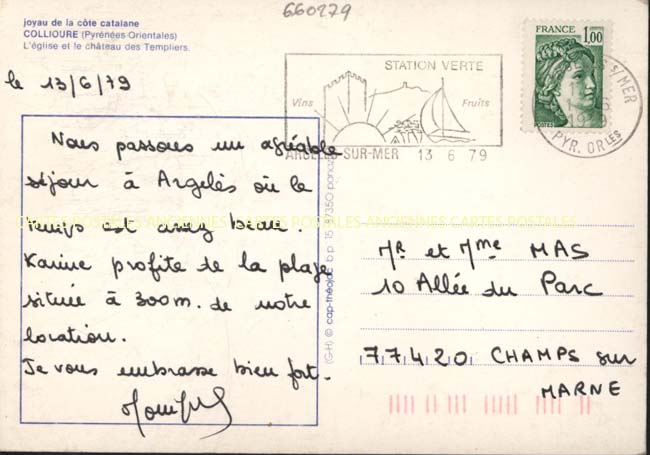 660279
joyau de la côte catalane
COLLIOURE (Pyrénées-Orientales)
L'église et le château des Templiers.
le 13/6/79
STATION VERTE
Vins
Fruits
ARGELÈS-SUR-MER 13 6 79
FRANCE 1,00
POSTES
S/MER
1979
PYR. ORles
Nous passons un agréable
séjour à Argelès où le
temps est assez beau.
Karine profite de la plage
située à 300m. de notre
location.
Je vous embrasse bien fort.
CARTES POSTALES ANCIENNES CARTES POSTALES ANCIENNES CARTES POSTALES
(G-H) © cap-théojac b p 15
Mr et Mme MAS
10 Allée du Parc
77420 CHAMPS sur
MARNE